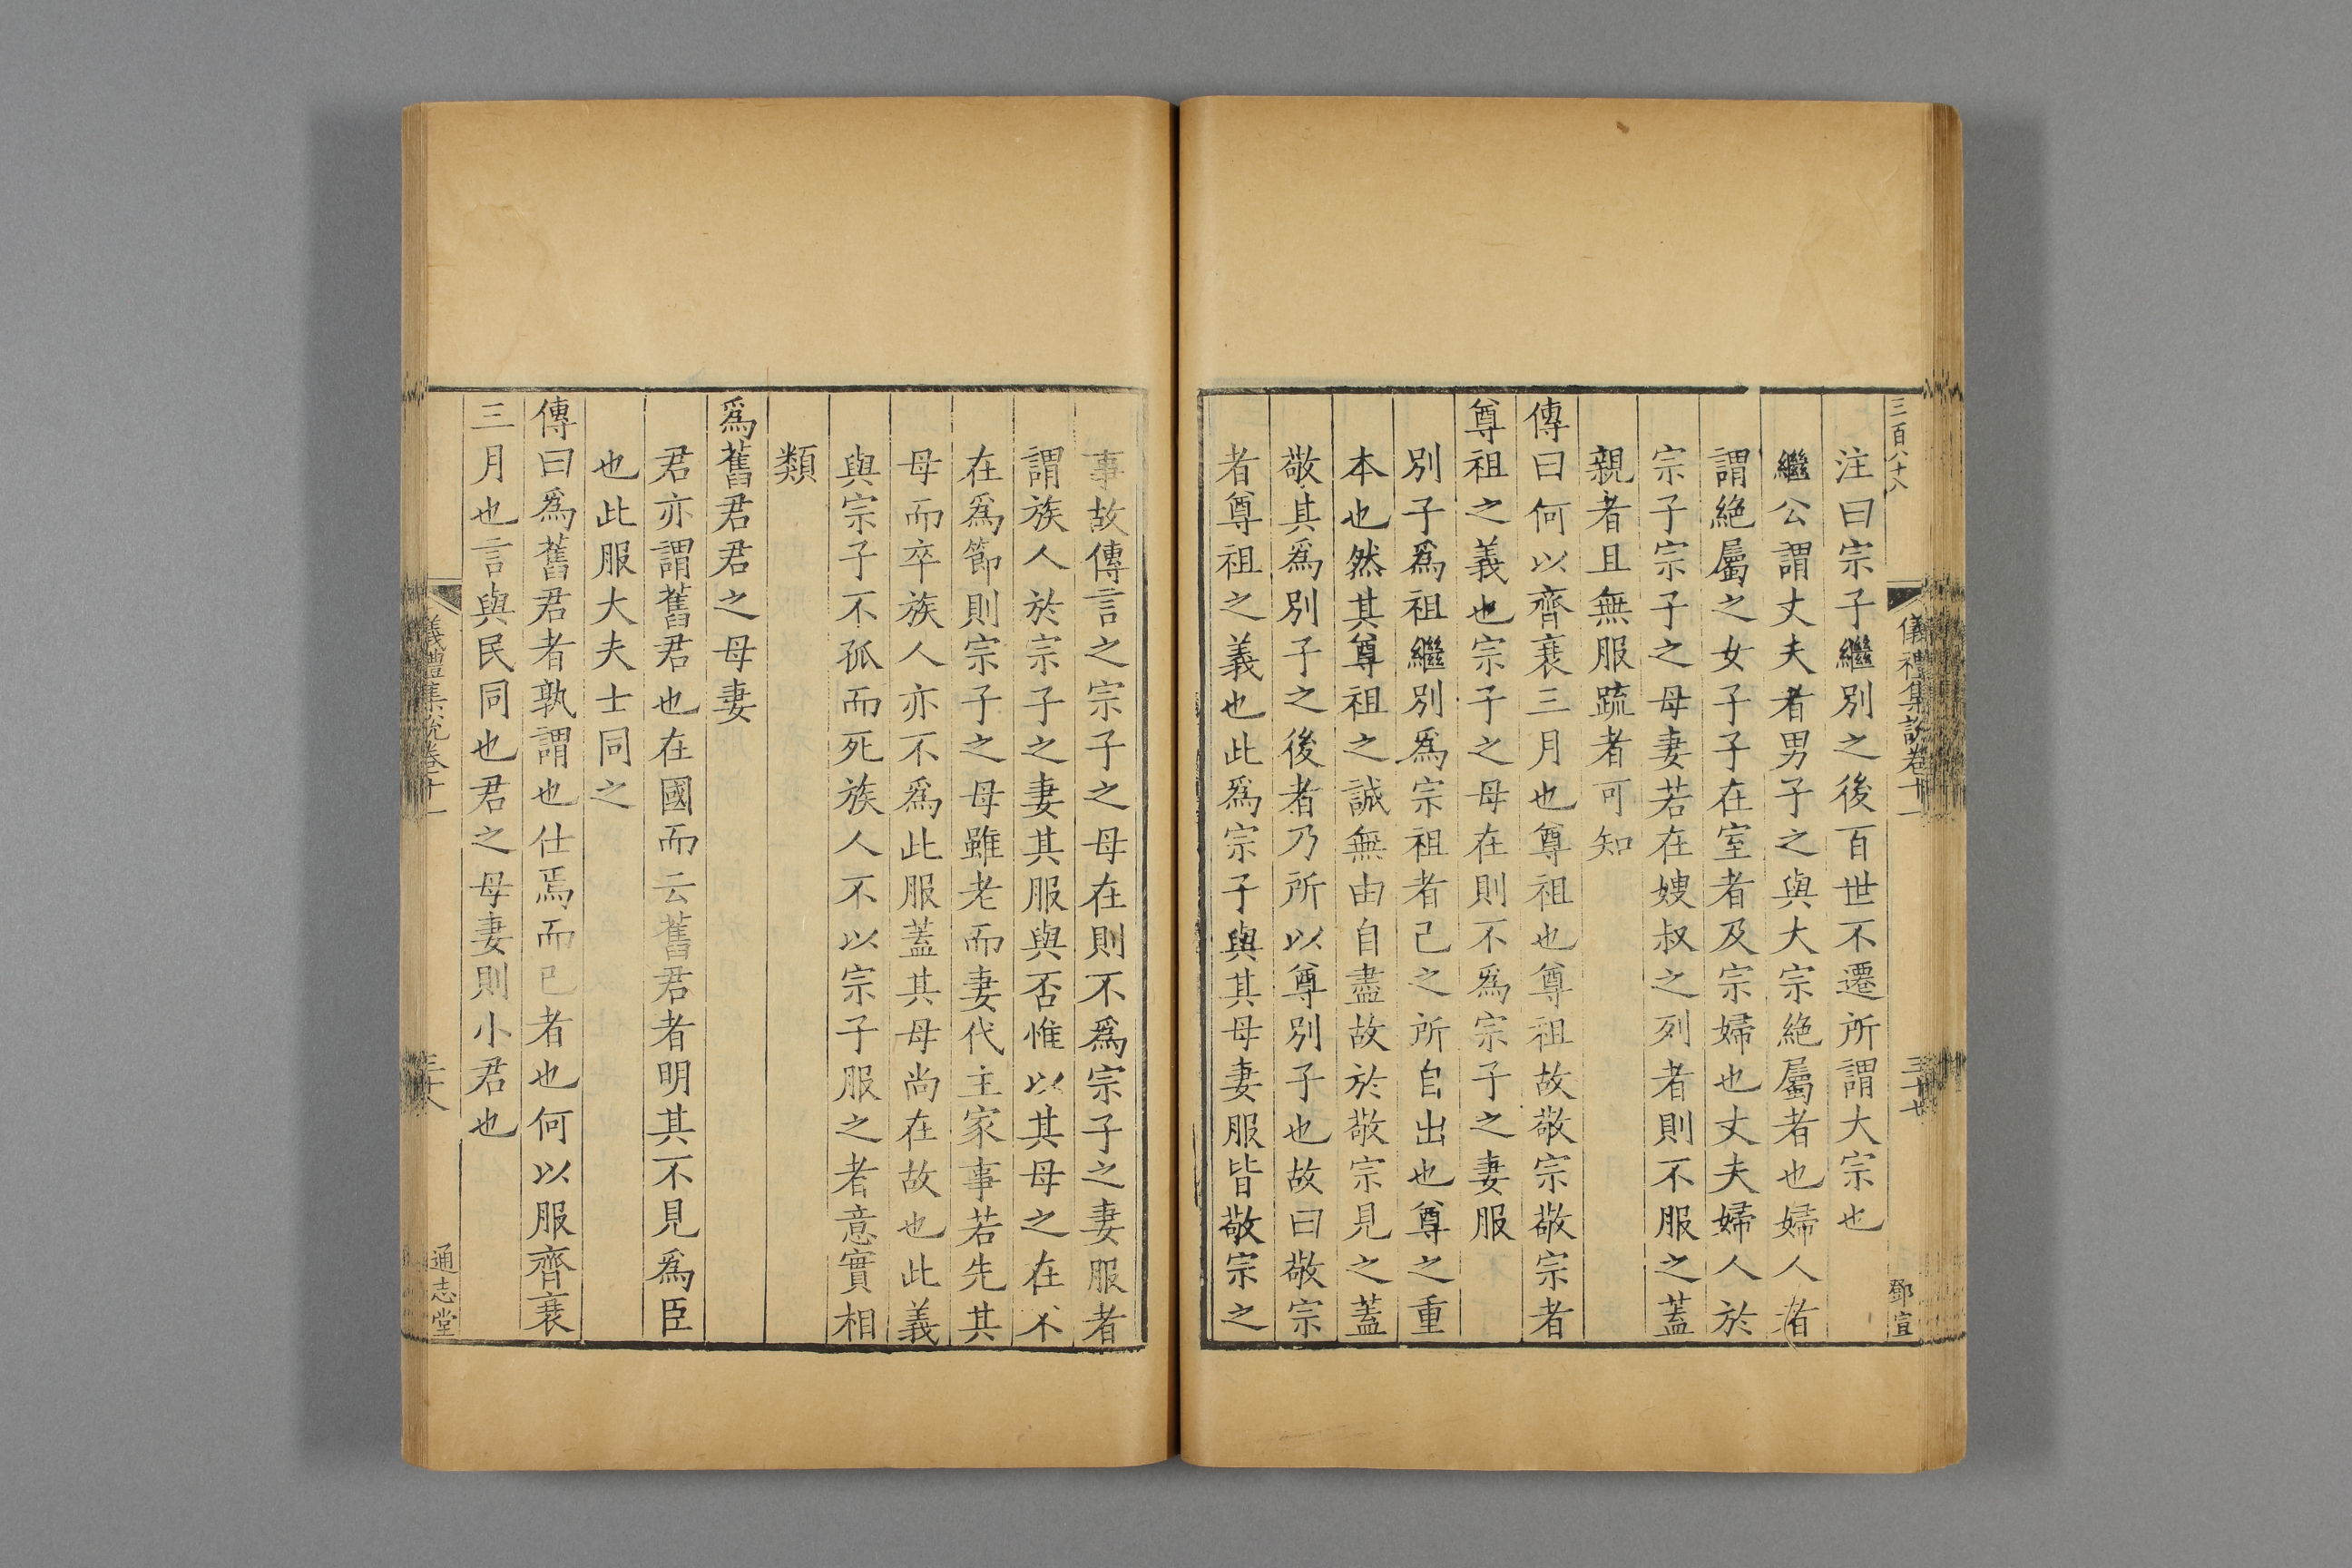 三百八十八
儀禮集說卷十一
三十七
鄧宣
注曰宗子繼別之後百世不遷所謂大宗也
繼公謂丈夫者男子之與大宗絕屬者也婦人者
謂絕屬之女子子在室者及宗婦也丈夫婦人於
宗子宗子之母妻若在嫂叔之列者則不服之蓋
親者且無服疏者可知
傳曰何以齊衰三月也尊祖也尊祖故敬宗敬宗者
尊祖之義也宗子之母在則不爲宗子之妻服
別子爲祖繼別爲宗祖者己之所自出也尊之重
本也然其尊祖之誠無由自盡故於敬宗見之蓋
敬其爲別子之後者乃所以尊別子也故曰敬宗
者尊祖之義也此爲宗子與其母妻服皆敬宗之
事故傳言之宗子之母在則不爲宗子之妻服者
謂族人於宗子之妻其服與否惟以其母之在不
在爲節則宗子之母雖老而妻代主家事若先其
母而卒族人亦不爲此服蓋其母尚在故也此義
與宗子不孤而死族人不以宗子服之者意實相
類
爲舊君君之母妻
君亦謂舊君也在國而云舊君者明其不見爲臣
也此服大夫士同之
傳曰爲舊君者孰謂也仕焉而已者也何以服齊衰
三月也言與民同也君之母妻則小君也
儀禮集說卷十一
通志堂